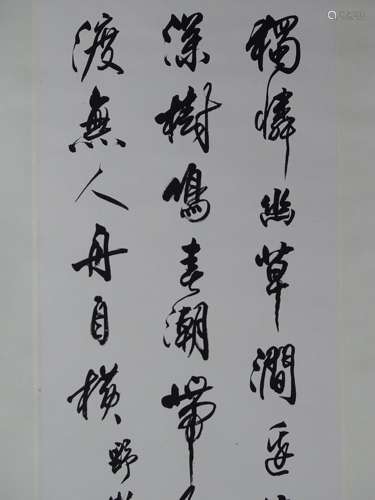 獨憐幽草澗邊
深樹鳴春潮帶
渡無人舟自橫
野